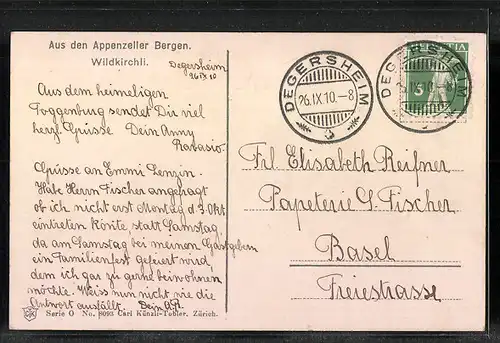 Aus den Appenzeller Bergen.
Wildkirchli.
Degersheim
26 IX 10
Aus dem heimeligen
Toggenburg sendet Dir viel
herzl. Grüsse Dein Anny
Ravasio.
Grüsse an Emmi Lenzin.
Habe Herrn Fischer angefragt
ob ich nicht erst Montag d 3. Okt
eintreten könnte, statt Samstag,
da am Samstag bei meinen Gastgebern
ein Familienfest gefeiert wird,
dem ich gar zu gerne beiwohnen
möchte. Weiss nun nicht wie die
Antwort ausfällt. Dein
Serie O No. 8093 Carl Künzli-Tobler. Zürich.
DEGERSHEIM
26.IX.10.–8
DEGERSHEIM
IX 10.–8
HELVETIA
5
Frl. Elisabeth Reifner
Papeterie G. Fischer
Basel
Freiestrasse